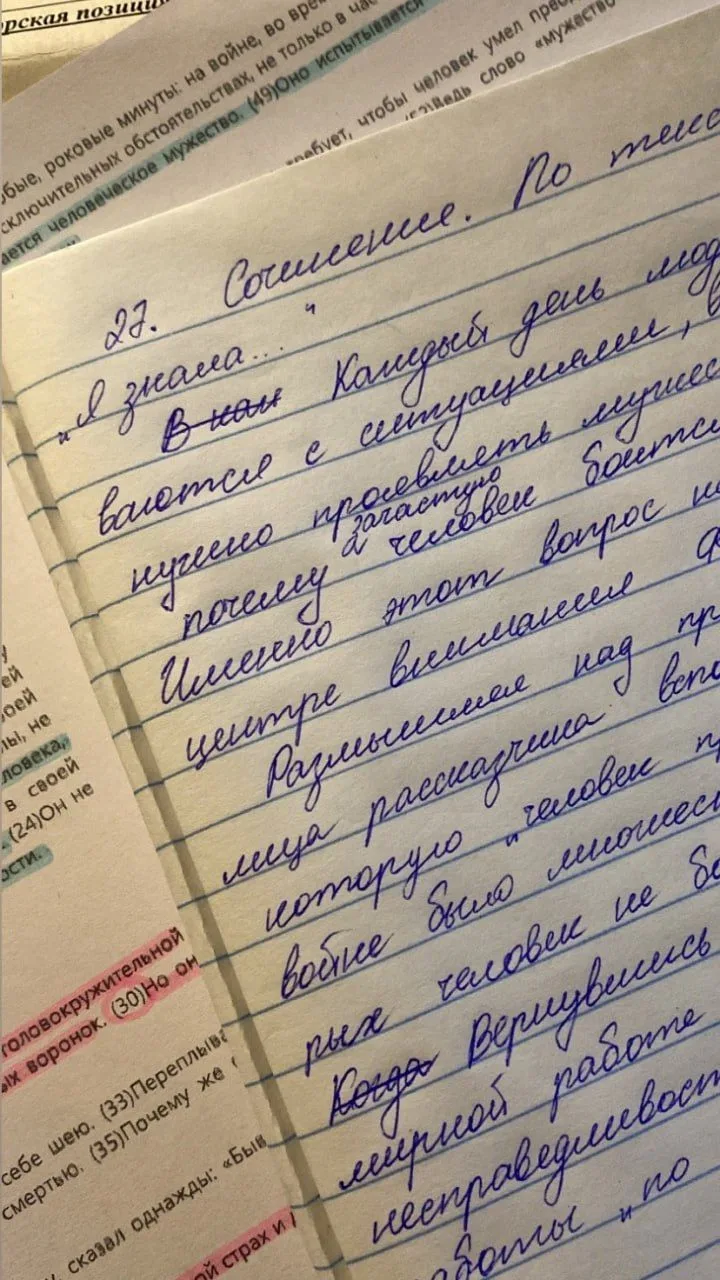 орская позици
обые, роковые минуты: на войне, во врем
сключительных обстоятельствах, не только в час
ается человеческое мужество. (49)Оно испытывается
требует, чтобы человек умел преод
Ведь слово «мужество
27. Сочинение. По текс
„Я знала..."
В как Каждый день люд
ваются с ситуациями, в
нужно проявлять мужес
зачастую
почему а человек боится
Именно этот вопрос на
центре внимания
Размышляя над пр
лица рассказчика вспо
которую „человек пр
войне было множест
рых человек не бо
Когда Вернувшись
мирной работе
несправедливост
аботы „по
ей
оей
лы, не
ловека,
в своей
(24)Он не
ости.
головокружительной
ых воронок. (30)Но он
себе шею. (33)Переплыва
смертью. (35)Почему же
сказал однажды: «Быв
ой страх и